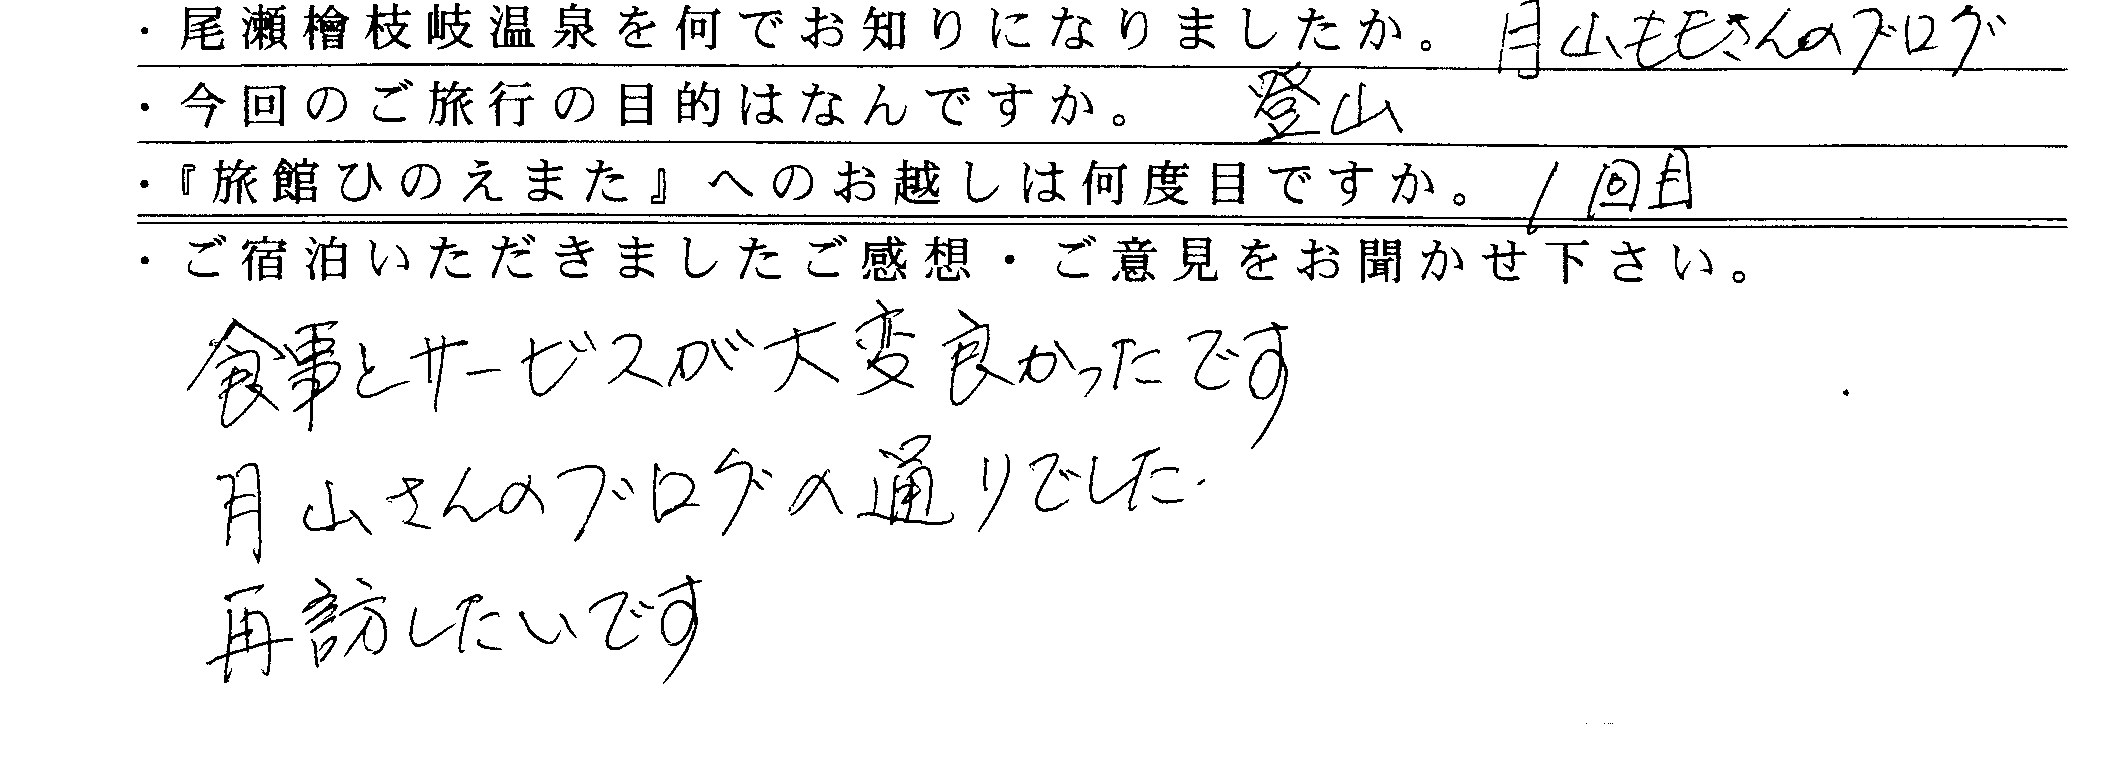 ・尾瀬檜枝岐温泉を何でお知りになりましたか。 月山ももさんのブログ
・今回のご旅行の目的はなんですか。 登山
・『旅館ひのえまた』へのお越しは何度目ですか。 1回目
・ご宿泊いただきましたご感想・ご意見をお聞かせ下さい。
食事とサービスが大変良かったです
月山さんのブログの通りでした.
再訪したいです